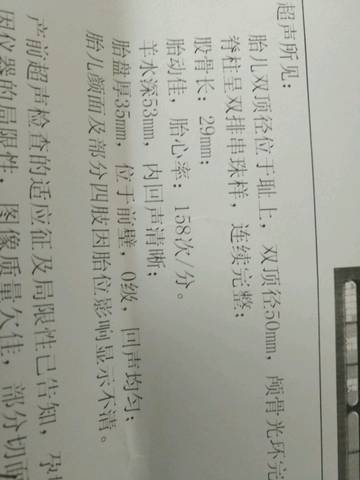 超声所见：
胎儿双顶径位于耻上，双顶径50mm，颅骨光环完
脊柱呈双排串珠样，连续完整；
股骨长：29mm；
胎动佳，胎心率：158次/分。
羊水深53mm，内回声清晰；
胎盘厚35mm，位于前壁，0级，回声均匀；
胎儿颜面及部分四肢因胎位影响显示不清。
产前超声检查的适应征及局限性已告知，
因仪器的局限性，图像质量欠佳，部分切面